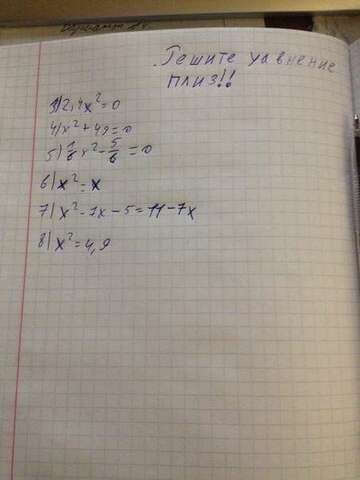 Решите уавнение
плиз!!
3) 2,4x²=0
4) x²+49=0
5) 1/6 x²-5/6=0
6) x²=x
7) x²-7x-5=11-7x
8) x²=4,9